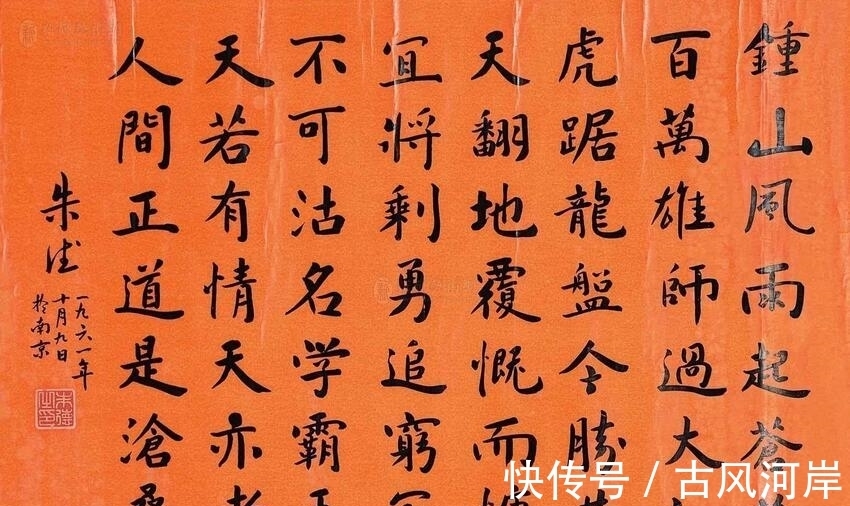 鍾山風雨起蒼
百萬雄師過大
虎踞龍盤今勝
天翻地覆慨而
宜將剩勇追窮
不可沽名学霸王
天若有情天亦老
人間正道是滄
朱德
一九六一年
十月九日
於南京
朱德之印
快传号 / 古风河岸